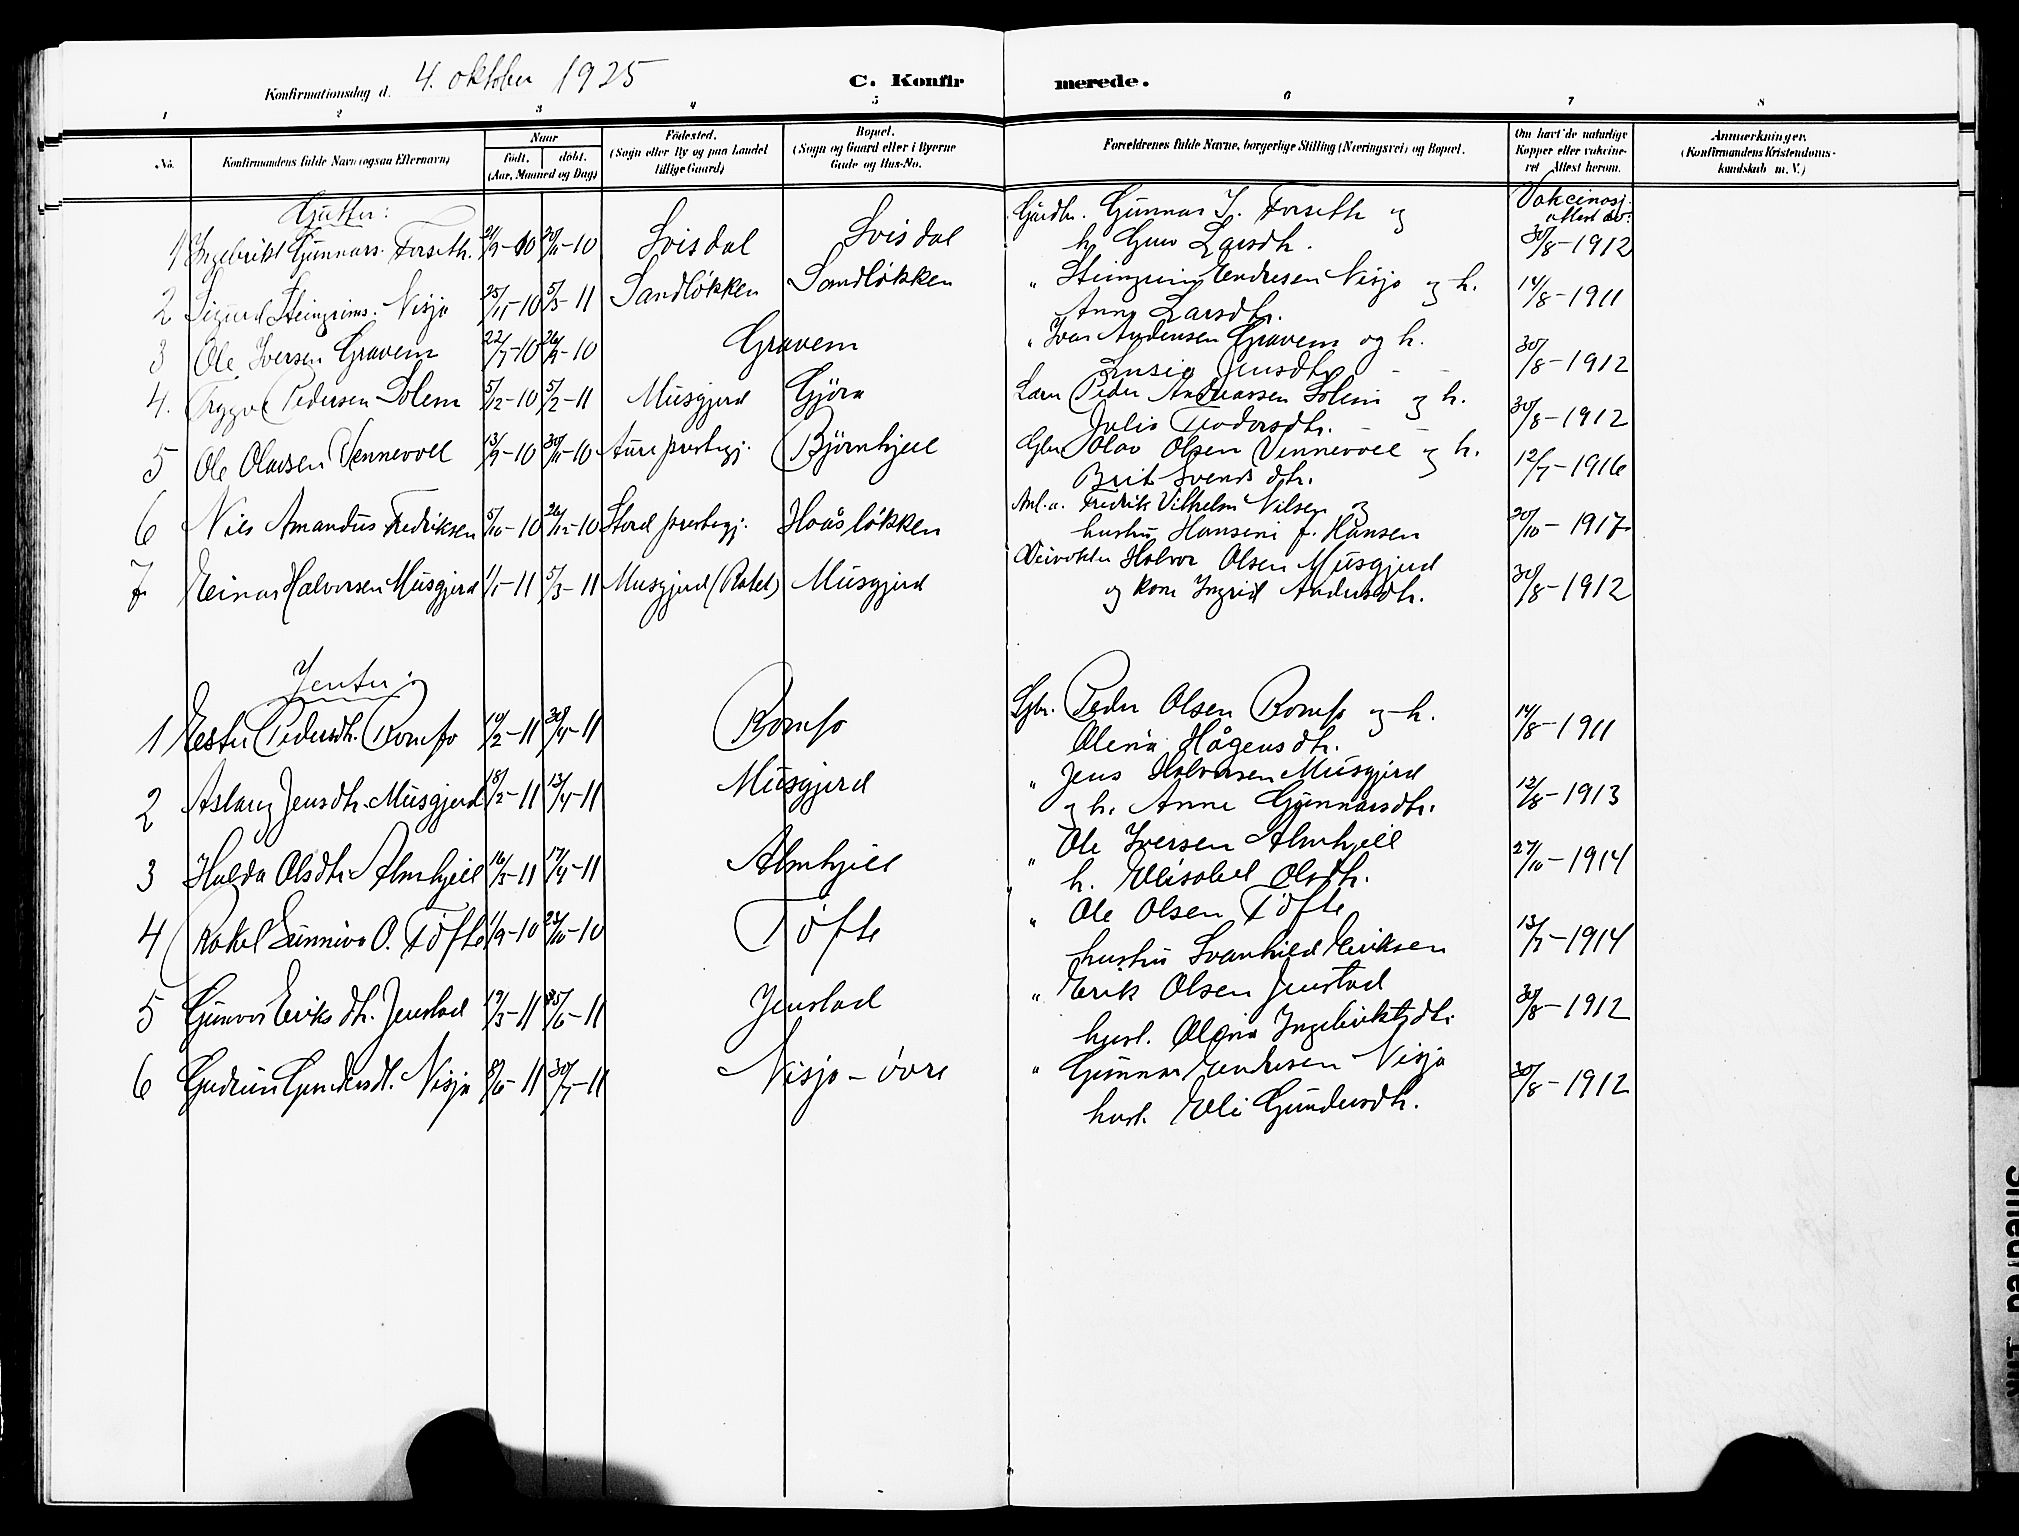 Konfirmationsdag d. 4. oktober 1925
C. Konfirmerede.
1 2 3 4 5 6 7 8
No.
Konfirmandens fulde Navn (ogsaa Efternavn)
Naar
født. døbt.
(Aar, Maaned og Dag)
Födested.
(Sogn eller By og paa Landet tillige Gaard)
Bopæl.
(Sogn og Gaard eller i Byerne Gade og Hus-No.
Forældrenes fulde Navne, borgerlige Stilling (Næringsvei) og Bopæl.
Om havt de naturlige Kopper eller vakcineret. Attest herom.
Anmærkninger.
(Konfirmandens Kristendomskundskab m. V.)
Gutter:
Vakcinasj. attest av:
1 Ingebrikt Gunnars. Forseth. 21/9-10 20/11-10 Svisdal Svisdal Gunnar I. Forseth og
h. Guro Larsdtr. 30/8-1912
2 Sigurd Steingrims. Nisja 25/11-10 5/3-11 Sandløkken Sandløkken " Steingrim Endresen Nisja og h.
Anne Larsdtr. 14/8-1911
3 Ole Iversen Gravem 22/7-10 26/9-10 Gravem " Ivar Andersen Gravem og h.
Jensdtr. 30/8-1912
4. Trygve Pedersen Solem 5/12-10 5/2-11 Musgjerd Gjöra Peder Andreassen Solem og h.
Julie 30/8-1912
5 Ole Olavsen Vennevoll 13/9-10 30/11-10 Aure prestegj. Björnhjell Gbr. Olav Olsen Vennevoll og h.
Brit Svends dtr. 12/7-1916
6 Nils Amandus Fredriksen 5/10-10 26/12-10 Stord prestegj. Hoåsløkken Anl.a. Fredrik Vilhelm Nilsen og
hustru Hansine f. Hansen 20/10-1917
7 Einar Halvorsen Musgjerd 1/1-11 5/3-11 Musgjerd (Raket) Musgjerd Veivokter Halvor Olsen Musgjerd
og kone Ingrid Andersdtr. 30/8-1912
Jenter:
1 Ester Pedersdtr. Romfo 10/2-11 30/4-11 Romfo Gbr. Peder Olsen Romfo og h.
Olena Hågensdtr. 14/8-1911
2 Aslaug Jensdtr. Musgjerd 18/2-11 13/4-11 Musgjerd " Jens Halvorsen Musgjerd
og h. Anne Gunnarsdtr. 12/8-1913
3 Hulda Olsdtr. Almhjell 16/3-11 17/4-11 Almhjell " Ole Iversen Almhjell
h. Elisabet Olsdtr. 27/10-1914
4 Rakel Sunniva O. Töfte 1/9-10 23/10-10 Töfte " Ole Olsen Töfte
hustru Svanhild Eriksen 13/7-1914
5 Gunvor Eriks dtr. Jenstad 19/3-11 25/6-11 Jenstad " Erik Olsen Jenstad
hust. Olena Ingebriktsdtr. 30/8-1912
6 Gudrun Gunnarsdt. Nisja 8/6-11 30/7-11 Nisja - övre " Gunnar Endresen Nisja
hust. Eli Gundersdtr. 30/8-1912